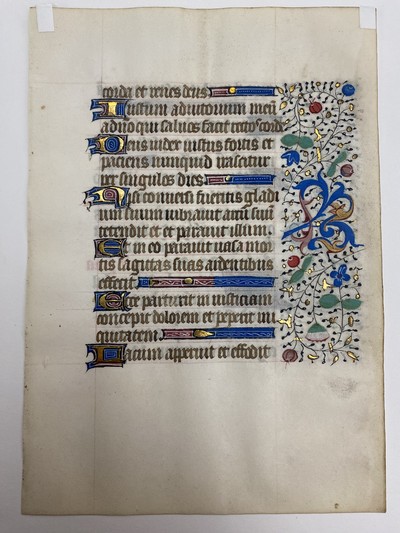 corda et renes deus
Iustum adiutorium meū
a dn̄o qui saluos facit rectos corde
Deus iudex iustus fortis et
paciens nunquid irascitur
per singulos dies
Nisi conuersi fueritis gladi
um suum uibrauit arcū suū
tetendit et et parauit illum
Et in eo parauit uasa mor
tis sagittas suas ardentibus
effecit
Ecce parturit in iusticiam
concepit dolorem et peperit ini
quitatem
Lacum apperuit et effodit